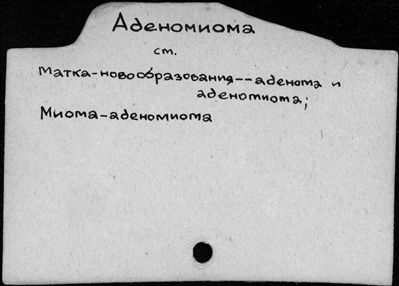 Аденомиома
ст.
Матка-новообразования--аденома и
аденомиома;
Миома-аденомиома